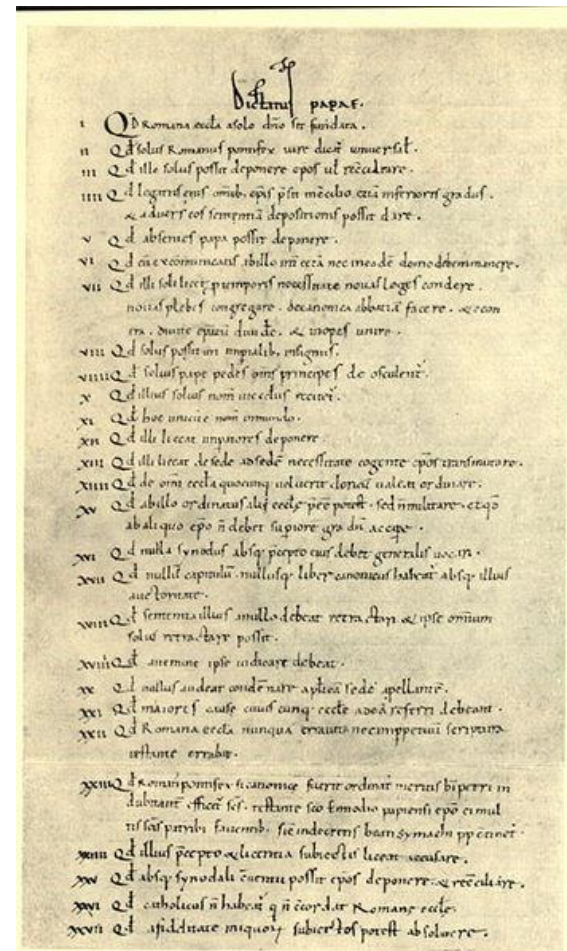 Dictatus PAPAE.
I Qd Romana eccla a solo dño sit fundata.
II Qd solus Romanus pontifex iure dicat̄ universal̄.
III Qd ille solus possit deponere epos ul̄ recc̄iliare.
IIII Qd legatus eius omib; epis p̄sit in c̄cilio, etiā inferioris gradus.
& adversˢ eos sententiā depositionis possit dare.
V Qd absentes papa possit deponere.
VI Qd cū excommunicatis ab illo int̄ cetā nec in eadē domo debem manere.
VII Qd illi soli licet p̄ temporis necessitate novas leges condere.
novas plebes congregare. de canonica abbatiā facere. & econ
tra. divite epatū divid̄e. & inopes unire.
VIII Qd solus possit uti imp̄ialib; insigniis.
VIIII Qd solius pape pedes om̄s principes de osculent̄.
X Qd illius solius nom̄ in ecclis recitet̄.
XI Qd hoc unicū ē nom̄ in mundo.
XII Qd illi liceat imp̄atores deponere.
XIII Qd illi liceat de sede ad sedē necessitate cogente epos transmutare.
XIIII Qd de om̄i eccla quocunq; voluerit clericū valeat ordinare.
XV Qd ab illo ordinatus alii eccle p̄ee potest. sed n̄ militare. et qd
ab aliquo epo n̄ debet supiore gradū accipe.
XVI Qd nulla synodus absq; p̄cepto eius debet generalis vocari.
XVII Qd nullū capitulū nullusq; liber canonicus habeat̄ absq; illius
auctoritate.
XVIII Qd sententia illius a nullo debeat retractari & ipse omnium
solus retractare possit.
XVIIII Qd a nemine ipse iudicare debeat.
XX Qd nullus audeat condēnare aplicā sedē apellante.
XXI Qd maiores cause cuiuscunq; eccle ad eā referri debeant.
XXII Qd Romana eccla nunquā erravit nec inppetuū scriptura
testante errabit.
XXIII Qd Romanˢ pontifex si canonice fuerit ordinatˢ meritis bī petri in
dubitant̄ efficit̄ scs. testante sco Ennodio papiensi epo ei mul
tis scis patribˢ faventib; sic̄ in decretis beati Symachi pp c̄tinet̄.
XXIIII Qd illius p̄cepto & licentia subiectis liceat accusare.
XXV Qd absq; synodali c̄ventu possit epos deponere & recc̄iliare.
XXVI Qd catholicus n̄ habeat̄ q̄ n̄ c̄cordat Romane eccle.
XXVII Qd a fidelitate iniquorū subiectos potest absolvere.